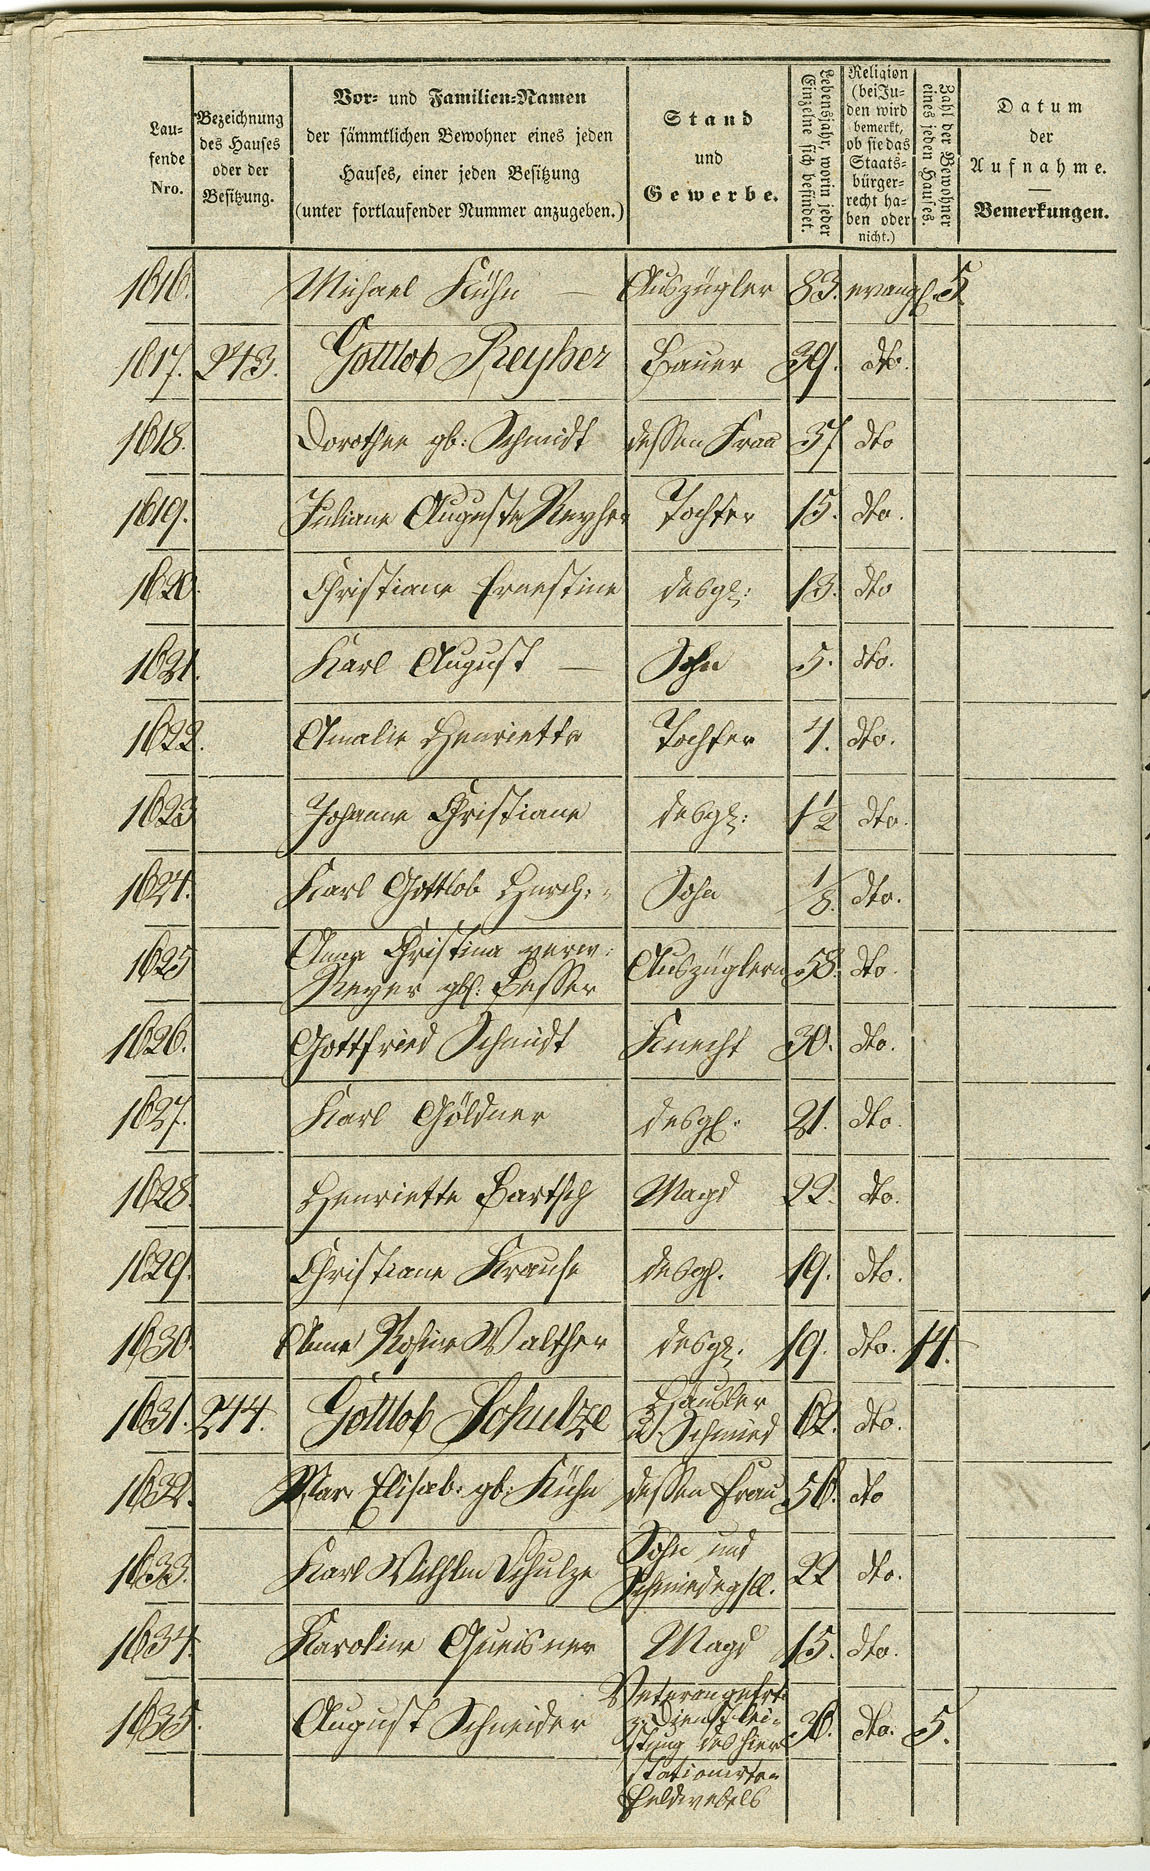 Lau-
fende
Nro.
Bezeichnung
des Hauses
oder der
Besitzung.
Vor- und Familien-Namen
der sämmtlichen Bewohner eines jeden
Hauses, einer jeden Besitzung
(unter fortlaufender Nummer anzugeben.)
Stand
und
Gewerbe.
Lebensjahr, worin jeder
Einzelne sich befindet.
Religion
(bei Ju-
den wird
bemerkt,
ob sie das
Staats-
bürger-
recht ha-
ben oder
nicht.)
Zahl der Bewohner
eines jeden Hauses.
Datum
der
Aufnahme.
Bemerkungen.
1616. Michael Kühn — Auszügler 83. evangl. 5
1617. 243. Gottlob Reyher Bauer 39. dto.
1618. Dorothee gb: Schmidt dessen Frau 37 dto
1619. Juliane Auguste Reyher Tochter 15. dto.
1620. Christiane Ernestine desgl: 13. dto
1621. Karl August — Sohn 5. dto.
1622. Amalie Henriette Tochter 4. dto.
1623 Johanne Christiane desgl: 1½ dto.
1624. Karl Gottlob Sohn 1/8. dto.
1625 Anna Christina verw:
Reyer gb: Besser Auszüglern 58. dto.
1626. Gottfried Schmidt Knecht 30. dto.
1627. Karl Göldner desgl. 21. dto.
1628. Henriette Bartsch Magd 22. dto.
1629. Christiane Krause desgl. 19. dto.
1630. Anne Rosine Walther desgl. 19. dto. 14.
1631. 244. Gottlob Schulze Häusler
u. Schmied 62. dto.
1632. Mar. Elisab: gb: Kühn dessen Frau 56. dto
1633. Karl Wilhlm Schulze Sohn und
Schmiedegsll. 22 dto.
1634. Karoline Queisner Magd 15. dto.
1635. August Schneider 36. dto. 5.
z. Dienstlei-
stung des hier
stationirten
Feldwebels